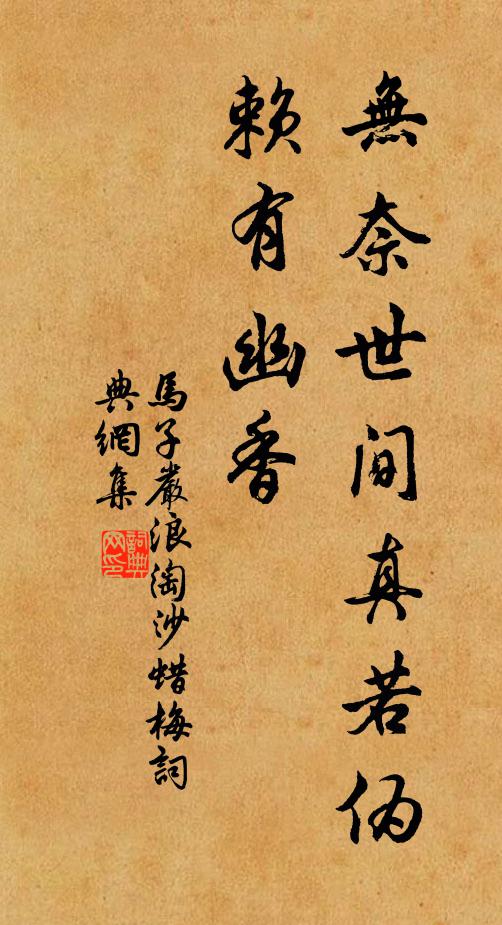 無奈世间真若偽
賴有幽香
馬子嚴浪淘沙蜡梅詞
典網集
詞典网印